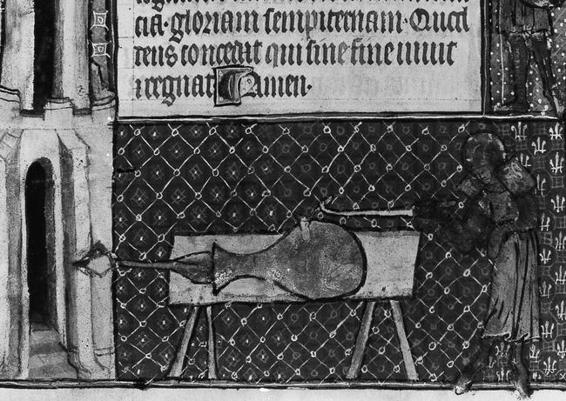 cia. gloriam sempiternam. Quod
deus concedat qui sine fine uiuit
⁊ regnat Amen.